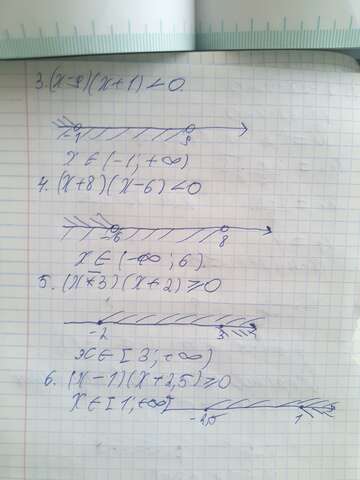 3. (x-9)(x+1)<0.
-1 9
x ∈ (-1; +∞)
4. (x+8)(x-6)<0
-6 8
x ∈ (-∞; 6).
5. (x-3)(x+2)≥0
-2 3
x ∈ [3; +∞)
6. (x-1)(x+2,5)≥0
x ∈ [1; +∞)
-2,5 1